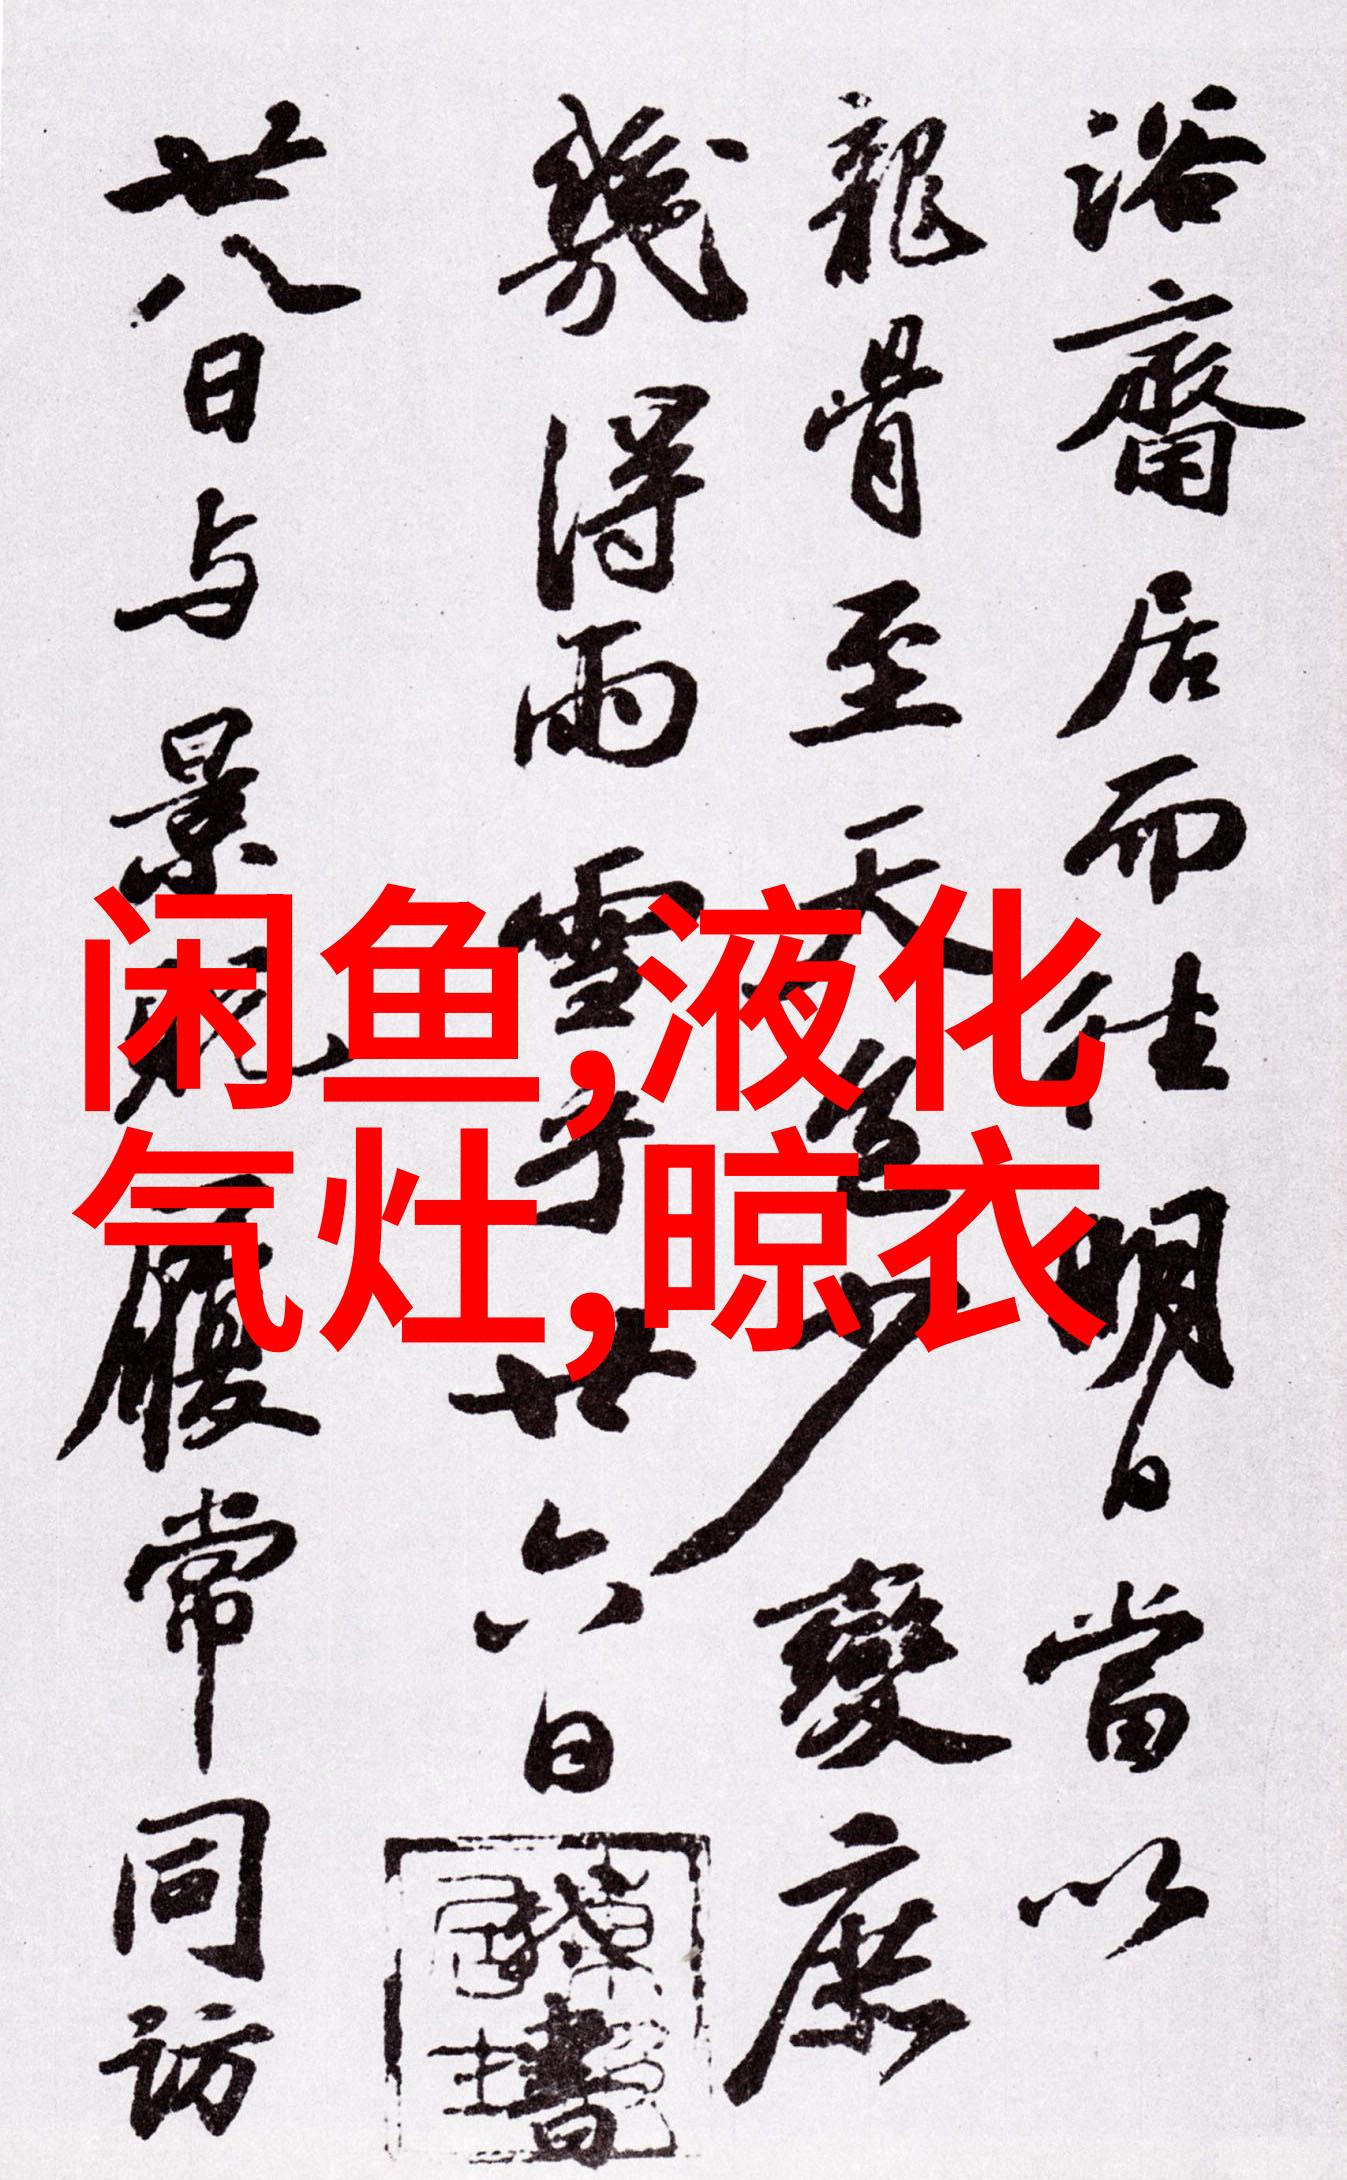 浴齋居而往明日當以
龍骨至天意少變庶
幾得雨雪乎廿六日書
廿八日与景貺履常同訪
闲鱼,液化
气灶,晾衣